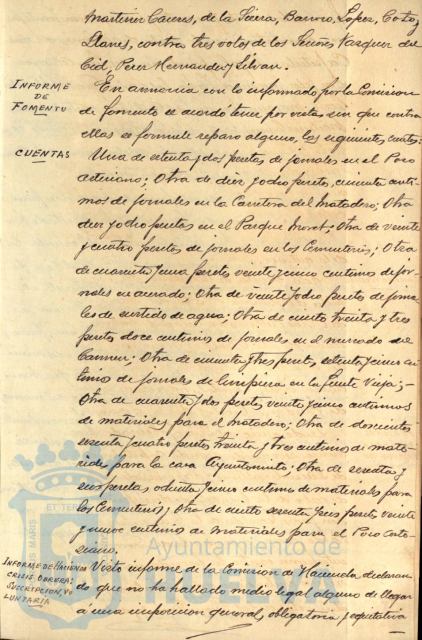 Martinez Caceres, de la Sierra, Barroso, Lopez, Coto y
Llanes, contra tres votos de los Señores Vazquez del
Cid, Perez Hernandez y Silvan.
INFORME
DE
FOMENTO
En armonia con lo informado por la Comision
de fomento se acordó tener por vistas sin que contra
ellas se formule reparo alguno, las siguientes cuentas:
CUENTAS
Una de setenta y dos pesetas de jornales en el Pozo
artesiano; Otra de diez y ocho pesetas, cincuenta centi-
mos de jornales en la Carretera del Matadero; Otra
diez y ocho pesetas en el Parque Moret; Otra de veinte
y cuatro pesetas de jornales en los Cementerios; Otra
de cuarenta y una pesetas veinte y cinco centimos de jor-
nales en acerado; Otra de veinte y ocho pesetas de jorna-
les de surtido de agua; Otra de ciento treinta y tres
pesetas doce centimos de jornales en el mercado del
Carmen; Otra de cincuenta y tres pesetas, setenta y cinco cen-
timos de jornales de limpieza en la Fuente Vieja;-
Otra de cuarenta y dos pesetas, veinte y cinco centimos
de materiales para el matadero; Otra de doscientos
sesenta y cuatro pesetas treinta y tres centimos de mate-
riales para la casa Ayuntamiento; Otra de
seis pesetas, ochenta y cinco centimos de materiales para
los Cementerios; y Otra de ciento sesenta y seis pesetas veinte
y nueve centimos de materiales para el Pozo arte-
siano.
Ayuntamiento de
HUELVA
INFORME DE HACIENDA
CRISIS OBRERA:
SUSCRIPCION VO
LUNTARIA
Visto informe de la Comision de Hacienda declaran-
do que no ha hallado medio legal alguno de llegar
a una imposicion general, obligatoria y equitativa